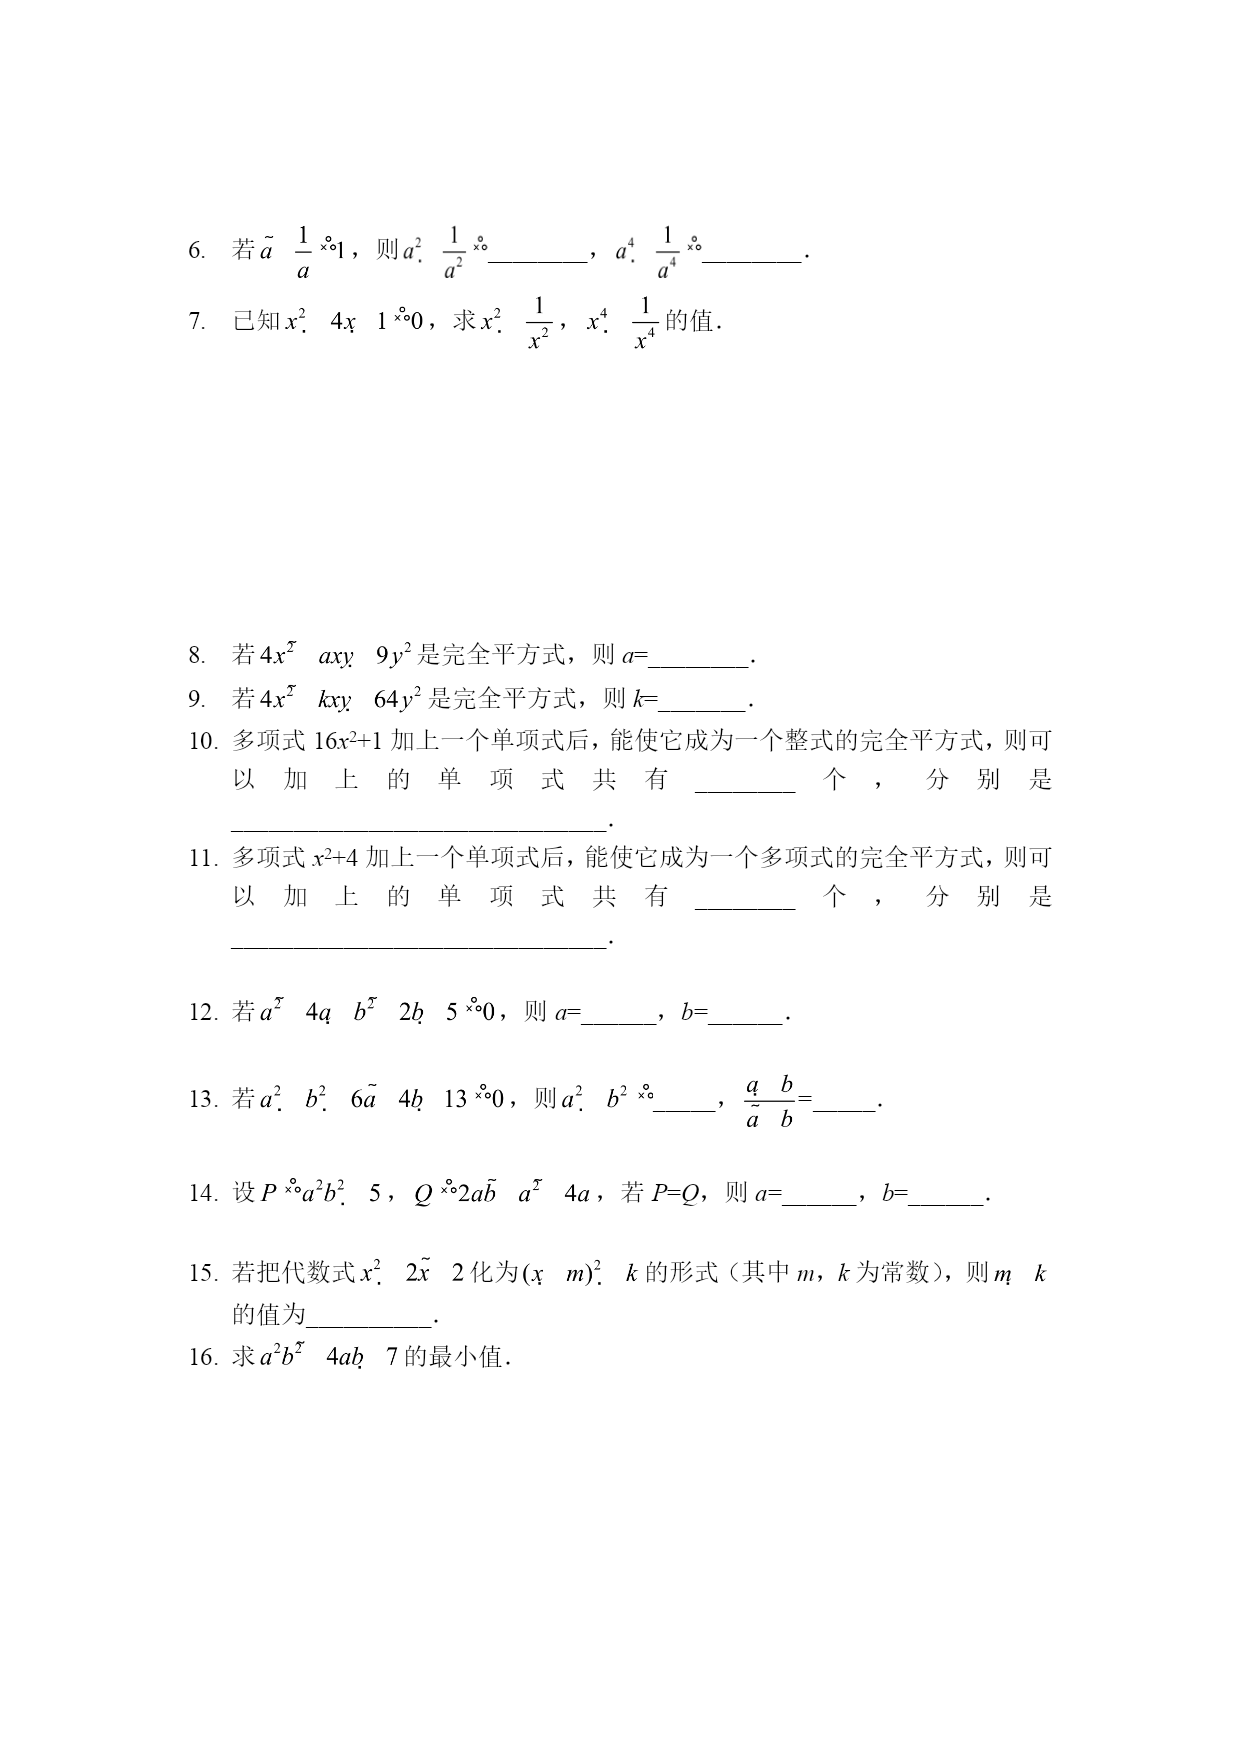 6. 若 a 1/a 1，则 a² 1/a² ________，a⁴ 1/a⁴ ________．
7. 已知 x² 4x 1 0，求 x² 1/x²，x⁴ 1/x⁴ 的值．
8. 若 4x² axy 9y² 是完全平方式，则 a=________．
9. 若 4x² kxy 64y² 是完全平方式，则 k=_______．
10. 多项式 16x²+1 加上一个单项式后，能使它成为一个整式的完全平方式，则可
以加上的单项式共有________个，分别是
______________________________．
11. 多项式 x²+4 加上一个单项式后，能使它成为一个多项式的完全平方式，则可
以加上的单项式共有________个，分别是
______________________________．
12. 若 a² 4a b² 2b 5 0，则 a=______，b=______．
13. 若 a² b² 6a 4b 13 0，则 a² b² _____，(a b)/(a b)=_____．
14. 设 P a²b² 5，Q 2ab a² 4a，若 P=Q，则 a=______，b=______．
15. 若把代数式 x² 2x 2 化为 (x m)² k 的形式（其中 m，k 为常数），则 m k
的值为__________．
16. 求 a²b² 4ab 7 的最小值．